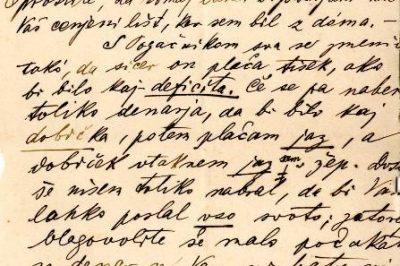 oprostite, da
Vaš cenjeni list, ker sem bil z doma. –
S Pogačnikom sva se zmenila
tako, da sicer on plača tisek, ako
bi bilo kaj deficita. Če se pa nabere
toliko denarja, da bi bilo kaj
dobička, potem plačam jaz, a
dobiček vtaknem jaz sam v žep. Dosl
še nisem toliko nabral, da bi Va
lahko poslal vso svoto; zatorej
blagovolite še malo počakati